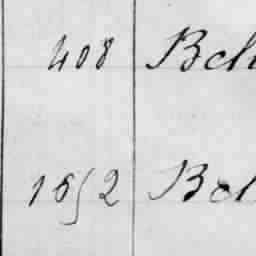 408 Bch
1852 Bol